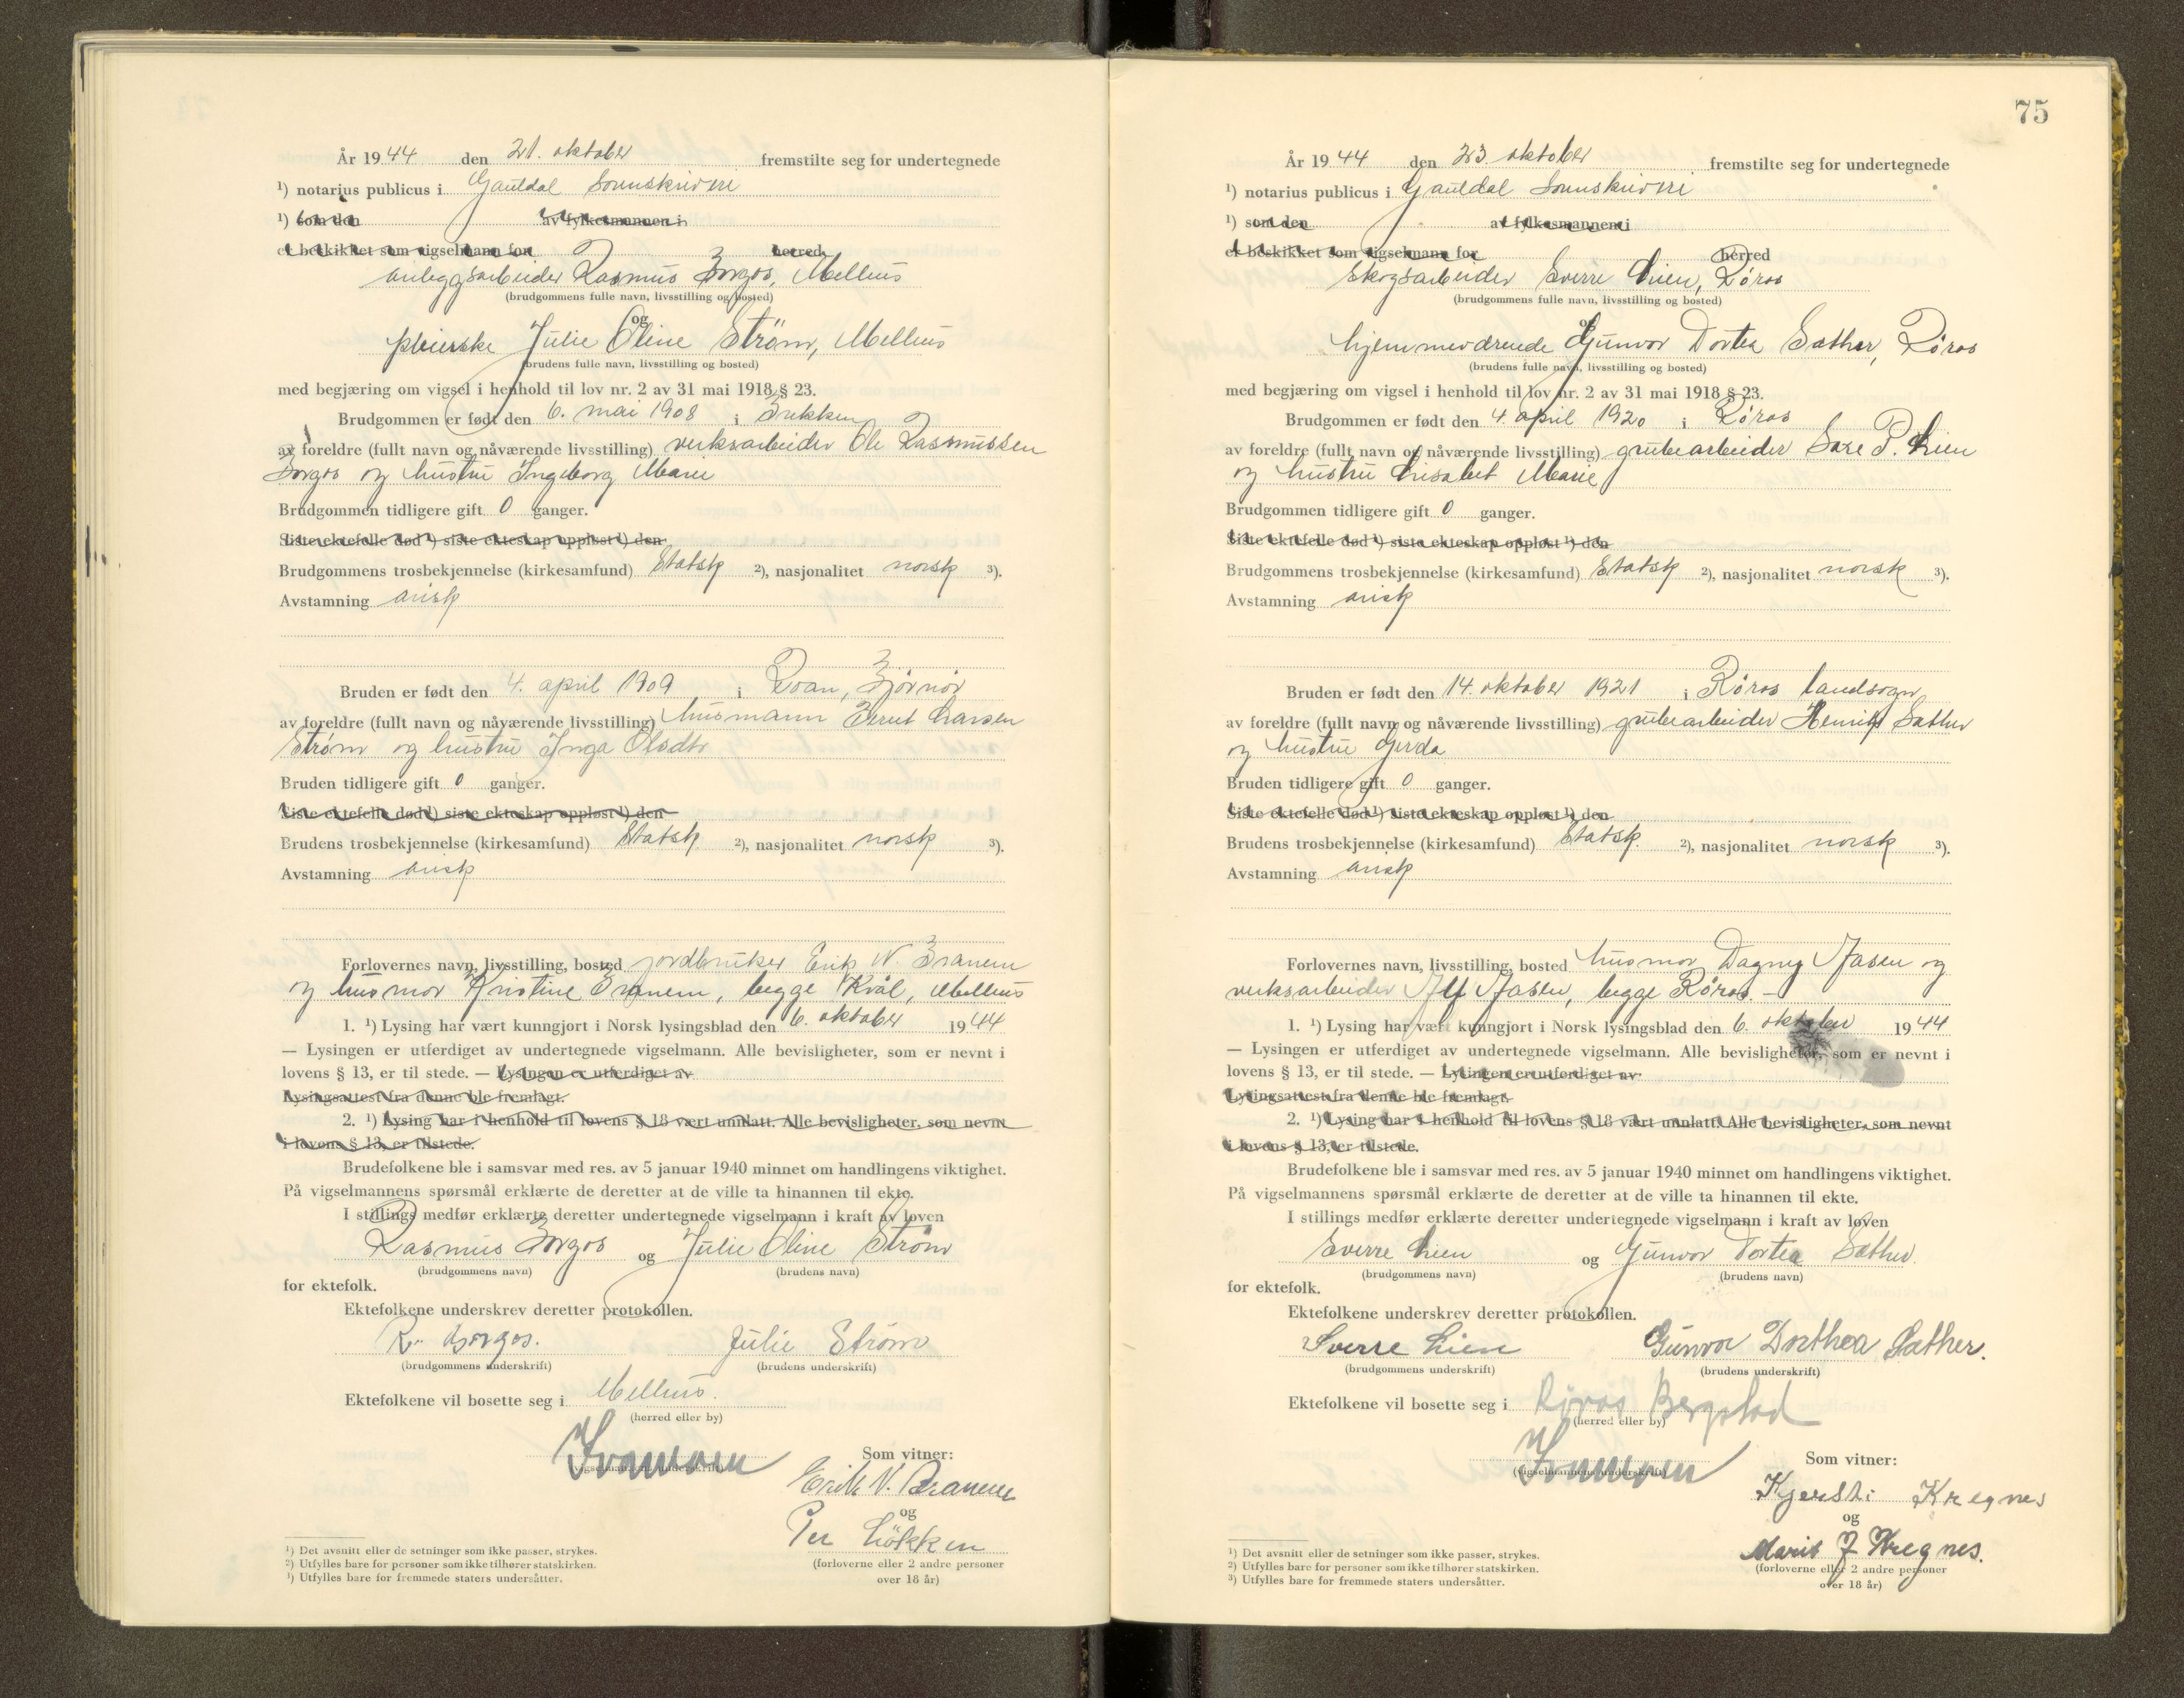 År 1944 den 21. oktober fremstilte seg for undertegnede
¹) notarius publicus i Gauldal Sorenskriveri
¹) som den av fylkesmannen i
er beskikket som vigselmann for herred
anleggsarbeider Rasmus Borgos, Melhus
(brudgommens fulle navn, livsstilling og bosted)
og
pleierske Julie Oline Strøm, Melhus
(brudens fulle navn, livsstilling og bosted)
med begjæring om vigsel i henhold til lov nr. 2 av 31 mai 1918 § 23.
Brudgommen er født den 6. mai 1908 i Brekken
av foreldre (fullt navn og nåværende livsstilling) verksarbeider Ole Rasmussen
Borgos og hustru Ingeborg Marie
Brudgommen tidligere gift 0 ganger.
Siste ektefelle død ¹) siste ekteskap oppløst ¹) den
Brudgommens trosbekjennelse (kirkesamfund) Statsk ²), nasjonalitet norsk ³).
Avstamning arisk
Bruden er født den 4. april 1909 i Roan, Bjørnør
av foreldre (fullt navn og nåværende livsstilling) husmann Bernt Larsen
Strøm og hustru Inga Olsdtr
Bruden tidligere gift 0 ganger.
Siste ektefelle død ¹) siste ekteskap oppløst ¹) den
Brudens trosbekjennelse (kirkesamfund) Statsk ²), nasjonalitet norsk ³).
Avstamning arisk
Forlovernes navn, livsstilling, bosted jordbruker Erik N. Branem
og husmor Kristine Branem, begge Kvål, Melhus
1. ¹) Lysing har vært kunngjort i Norsk lysingsblad den 6. oktober 1944
— Lysingen er utferdiget av undertegnede vigselmann. Alle bevisligheter, som er nevnt i
lovens § 13, er til stede. — Lysingen er utferdiget av
Lysingsattest fra denne ble fremlagt.
2. ¹) Lysing har i henhold til lovens § 18 vært unnlatt. Alle bevisligheter, som nevnt
i lovens § 13, er tilstede.
Brudefolkene ble i samsvar med res. av 5 januar 1940 minnet om handlingens viktighet.
På vigselmannens spørsmål erklærte de deretter at de ville ta hinannen til ekte.
I stillings medfør erklærte deretter undertegnede vigselmann i kraft av loven
Rasmus Borgos og Julie Oline Strøm
(brudgommens navn) (brudens navn)
for ektefolk.
Ektefolkene underskrev deretter protokollen.
R. Borgos. Julie Strøm
(brudgommens underskrift) (brudens underskrift)
Ektefolkene vil bosette seg i Melhus.
(herred eller by)
(vigselmannens underskrift) Som vitner:
Erik N. Branem
og
Per Løkken
(forloverne eller 2 andre personer
over 18 år)
¹) Det avsnitt eller de setninger som ikke passer, strykes.
²) Utfylles bare for personer som ikke tilhører statskirken.
³) Utfylles bare for fremmede staters undersåtter.
75
År 1944 den 23. oktober fremstilte seg for undertegnede
¹) notarius publicus i Gauldal Sorenskriveri
¹) som den av fylkesmannen i
er beskikket som vigselmann for herred
Skogsarbeider Sverre Lien, Røros
(brudgommens fulle navn, livsstilling og bosted)
og
hjemmeværende Gunvor Dortea Sæther, Røros
(brudens fulle navn, livsstilling og bosted)
med begjæring om vigsel i henhold til lov nr. 2 av 31 mai 1918 § 23.
Brudgommen er født den 4. april 1920 i Røros
av foreldre (fullt navn og nåværende livsstilling) grubearbeider P. Lien
og hustru Lisabet Marie
Brudgommen tidligere gift 0 ganger.
Siste ektefelle død ¹) siste ekteskap oppløst ¹) den
Brudgommens trosbekjennelse (kirkesamfund) Statsk ²), nasjonalitet norsk ³).
Avstamning arisk
Bruden er født den 14. oktober 1921 i Røros landsogn
av foreldre (fullt navn og nåværende livsstilling) grubearbeider Henrik Sæther
og hustru Gerda
Bruden tidligere gift 0 ganger.
Siste ektefelle død ¹) siste ekteskap oppløst ¹) den
Brudens trosbekjennelse (kirkesamfund) Statsk. ²), nasjonalitet norsk ³).
Avstamning arisk
Forlovernes navn, livsstilling, bosted husmor Dagny og
verksarbeider begge Røros. —
1. ¹) Lysing har vært kunngjort i Norsk lysingsblad den 6. oktober 1944
— Lysingen er utferdiget av undertegnede vigselmann. Alle bevisligheter, som er nevnt i
lovens § 13, er til stede. — Lysingen er utferdiget av
Lysingsattest fra denne ble fremlagt.
2. ¹) Lysing har i henhold til lovens § 18 vært unnlatt. Alle bevisligheter, som nevnt
i lovens § 13, er tilstede.
Brudefolkene ble i samsvar med res. av 5 januar 1940 minnet om handlingens viktighet.
På vigselmannens spørsmål erklærte de deretter at de ville ta hinannen til ekte.
I stillings medfør erklærte deretter undertegnede vigselmann i kraft av loven
Sverre Lien og Gunvor Dortea Sæther
(brudgommens navn) (brudens navn)
for ektefolk.
Ektefolkene underskrev deretter protokollen.
Sverre Lien Gunvor Dorthea Sæther.
(brudgommens underskrift) (brudens underskrift)
Ektefolkene vil bosette seg i Røros Bergstad
(herred eller by)
(vigselmannens underskrift) Som vitner:
Kjersti Kregnes
og
Marit J Kregnes.
(forloverne eller 2 andre personer
over 18 år)
¹) Det avsnitt eller de setninger som ikke passer, strykes.
²) Utfylles bare for personer som ikke tilhører statskirken.
³) Utfylles bare for fremmede staters undersåtter.